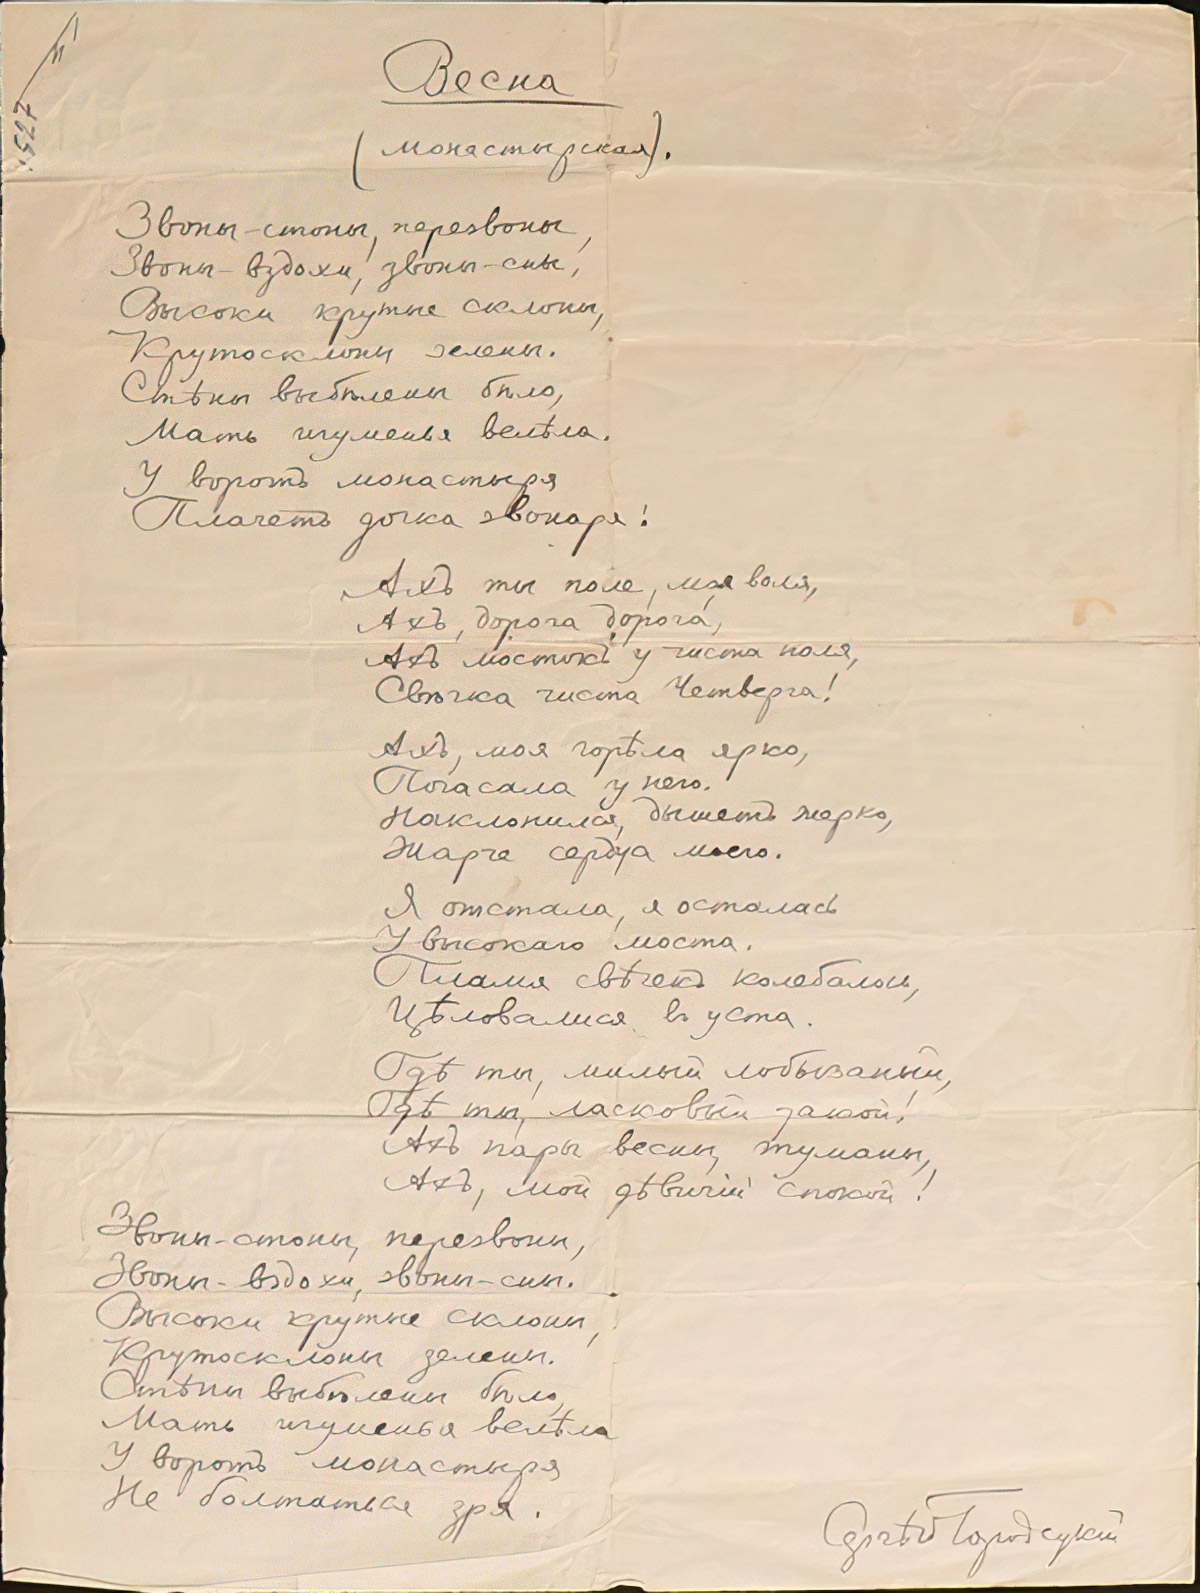 Весна
(монастырская).
Звоны-стоны, перезвоны,
Звоны-вздохи, звоны-сны,
Высоки крутые склоны,
Крутосклоны зелены.
Стѣны выбѣлены бѣло,
Мать игуменья велѣла.
У воротъ монастыря
Плачетъ дочка звонаря!
Ахъ ты поле, моя воля,
Ахъ, дорога дорога,
Ахъ мостокъ у чиста поля,
Свѣчка чиста Четверга!
Ахъ, моя горѣла ярко,
Погасала у него.
Наклонился, дышетъ жарко,
Жарче сердца моего.
Я отстала, я осталась
У высокаго моста.
Пламя свѣчекъ колебалось,
Цѣловалися въ уста.
Гдѣ ты, милый лобызаный,
Гдѣ ты, ласковый такой!
Ахъ пары весны, туманы,
Ахъ, мой дѣвичій спокой!
Звоны-стоны, перезвоны,
Звоны-вздохи, звоны-сны.
Высоки крутые склоны,
Крутосклоны зелены.
Стѣны выбѣлены бѣло,
Мать игуменья велѣла
У воротъ монастыря
Не болтаться зря.
Сергѣй Городецкій